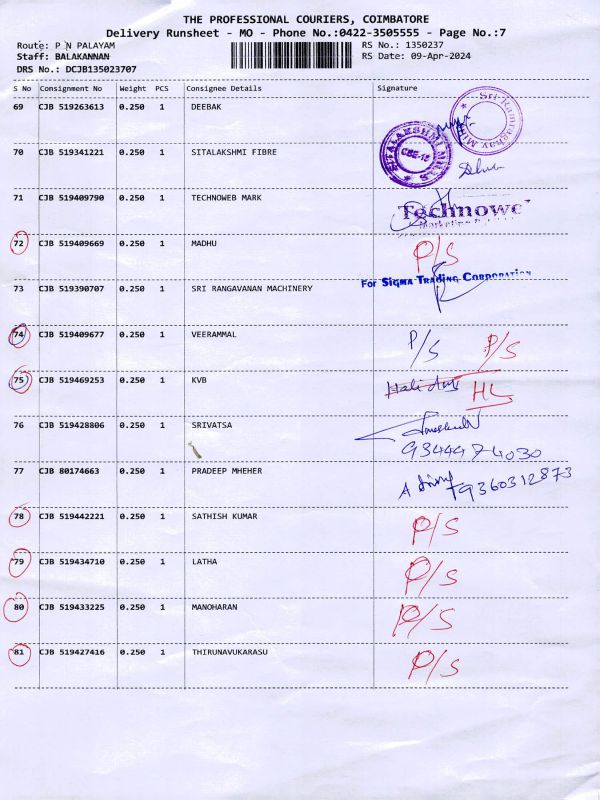 THE PROFESSIONAL COURIERS, COIMBATORE
Delivery Runsheet - MO - Phone No.:0422-3505555 - Page No.:7
Route: P N PALAYAM
RS No.: 1350237
Staff: BALAKANNAN
RS Date: 09-Apr-2024
DRS No.: DCJB135023707
S No Consignment No Weight PCS Consignee Details Signature
69 CJB 519263613 0.250 1 DEEBAK
SITALAKSHMI MILLS CBE-15
70 CJB 519341221 0.250 1 SITALAKSHMI FIBRE
71 CJB 519409790 0.250 1 TECHNOWEB MARK
Technowe
72 CJB 519409669 0.250 1 MADHU P/S
For SIGMA TRADING CORPORATION
73 CJB 519390707 0.250 1 SRI RANGAVANAN MACHINERY
74 CJB 519409677 0.250 1 VEERAMMAL P/S P/S
75 CJB 519469253 0.250 1 KVB HL
76 CJB 519428806 0.250 1 SRIVATSA
9344974030
77 CJB 80174663 0.250 1 PRADEEP MHEHER 9360312873
78 CJB 519442221 0.250 1 SATHISH KUMAR P/S
79 CJB 519434710 0.250 1 LATHA P/S
80 CJB 519433225 0.250 1 MANOHARAN P/S
81 CJB 519427416 0.250 1 THIRUNAVUKARASU P/S